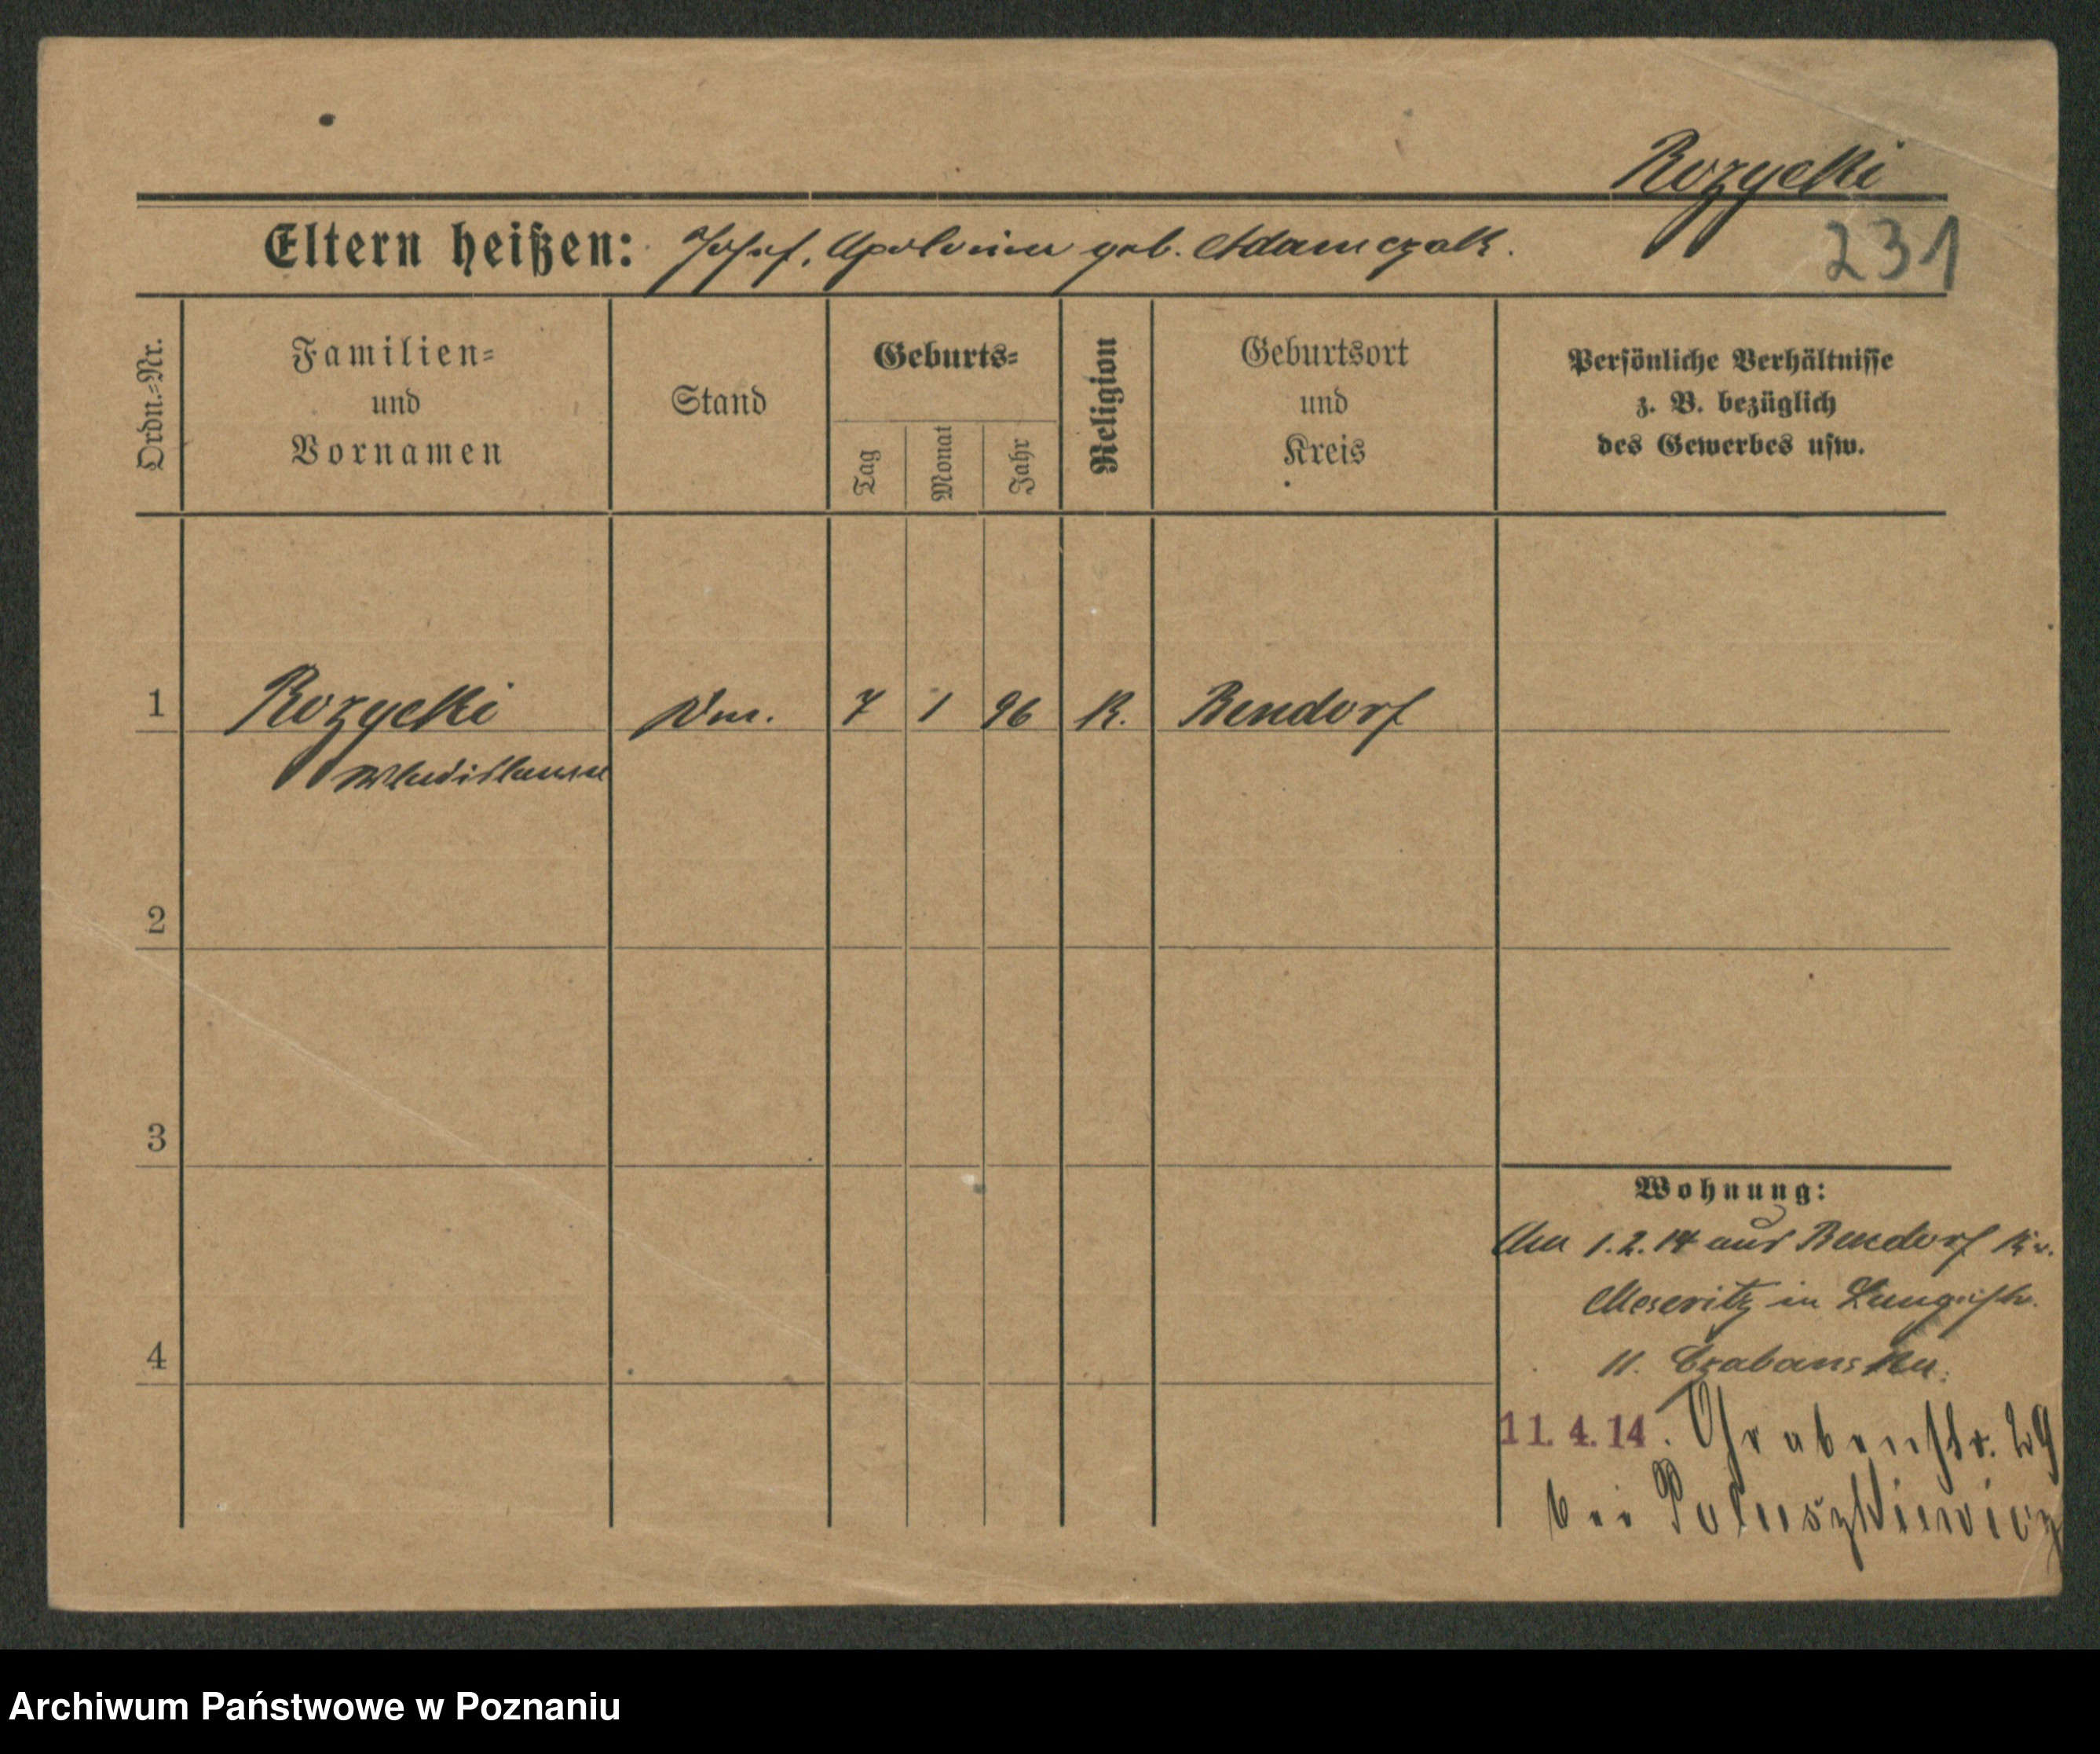 Rozycki
Eltern heißen: Josef, Apolonia geb. Adamczak.
231
Ordn.=Nr.
Familien=
und
Vornamen
Stand
Geburts=
Tag
Monat
Jahr
Religion
Geburtsort
und
Kreis
Persönliche Verhältnisse
z. B. bezüglich
des Gewerbes usw.
1 Rozycki 7 1 96 K. Bendorf
Wladislawa
2
3
4
Wohnung:
Am 1.2.14 aus Bendorf Kr.
Meseritz in Langestr.
11.
11.4.14. Grabenstr. 29
bei
Archiwum Państwowe w Poznaniu